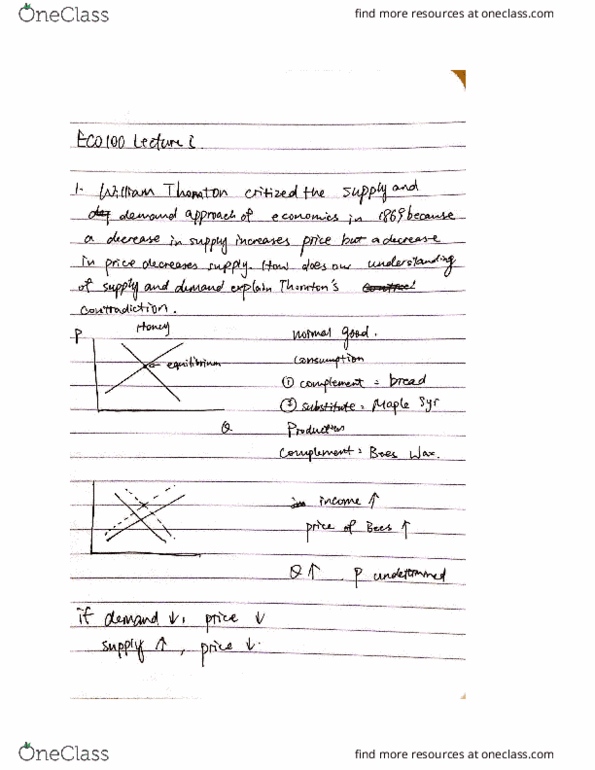 OneClass
find more resources at oneclass.com
ECO100 Lecture
1. William Thornton critized the supply and
demand approach of economies in 1869 because
a decrease in supply increases price but a decrease
in price decreases supply. How does our understanding
of supply and demand explain Thornton's
contradiction.
P
Honey
equilibrium
Q
normal good.
Consumption
① complement = bread
② substitute = Maple Syr
Production
Complement = Bees Wax.
income ↑
price of Bees ↑
Q ↑ P undetermined
if demand ↓, price ↓
supply ↑, price ↓.
OneClass
find more resources at oneclass.com